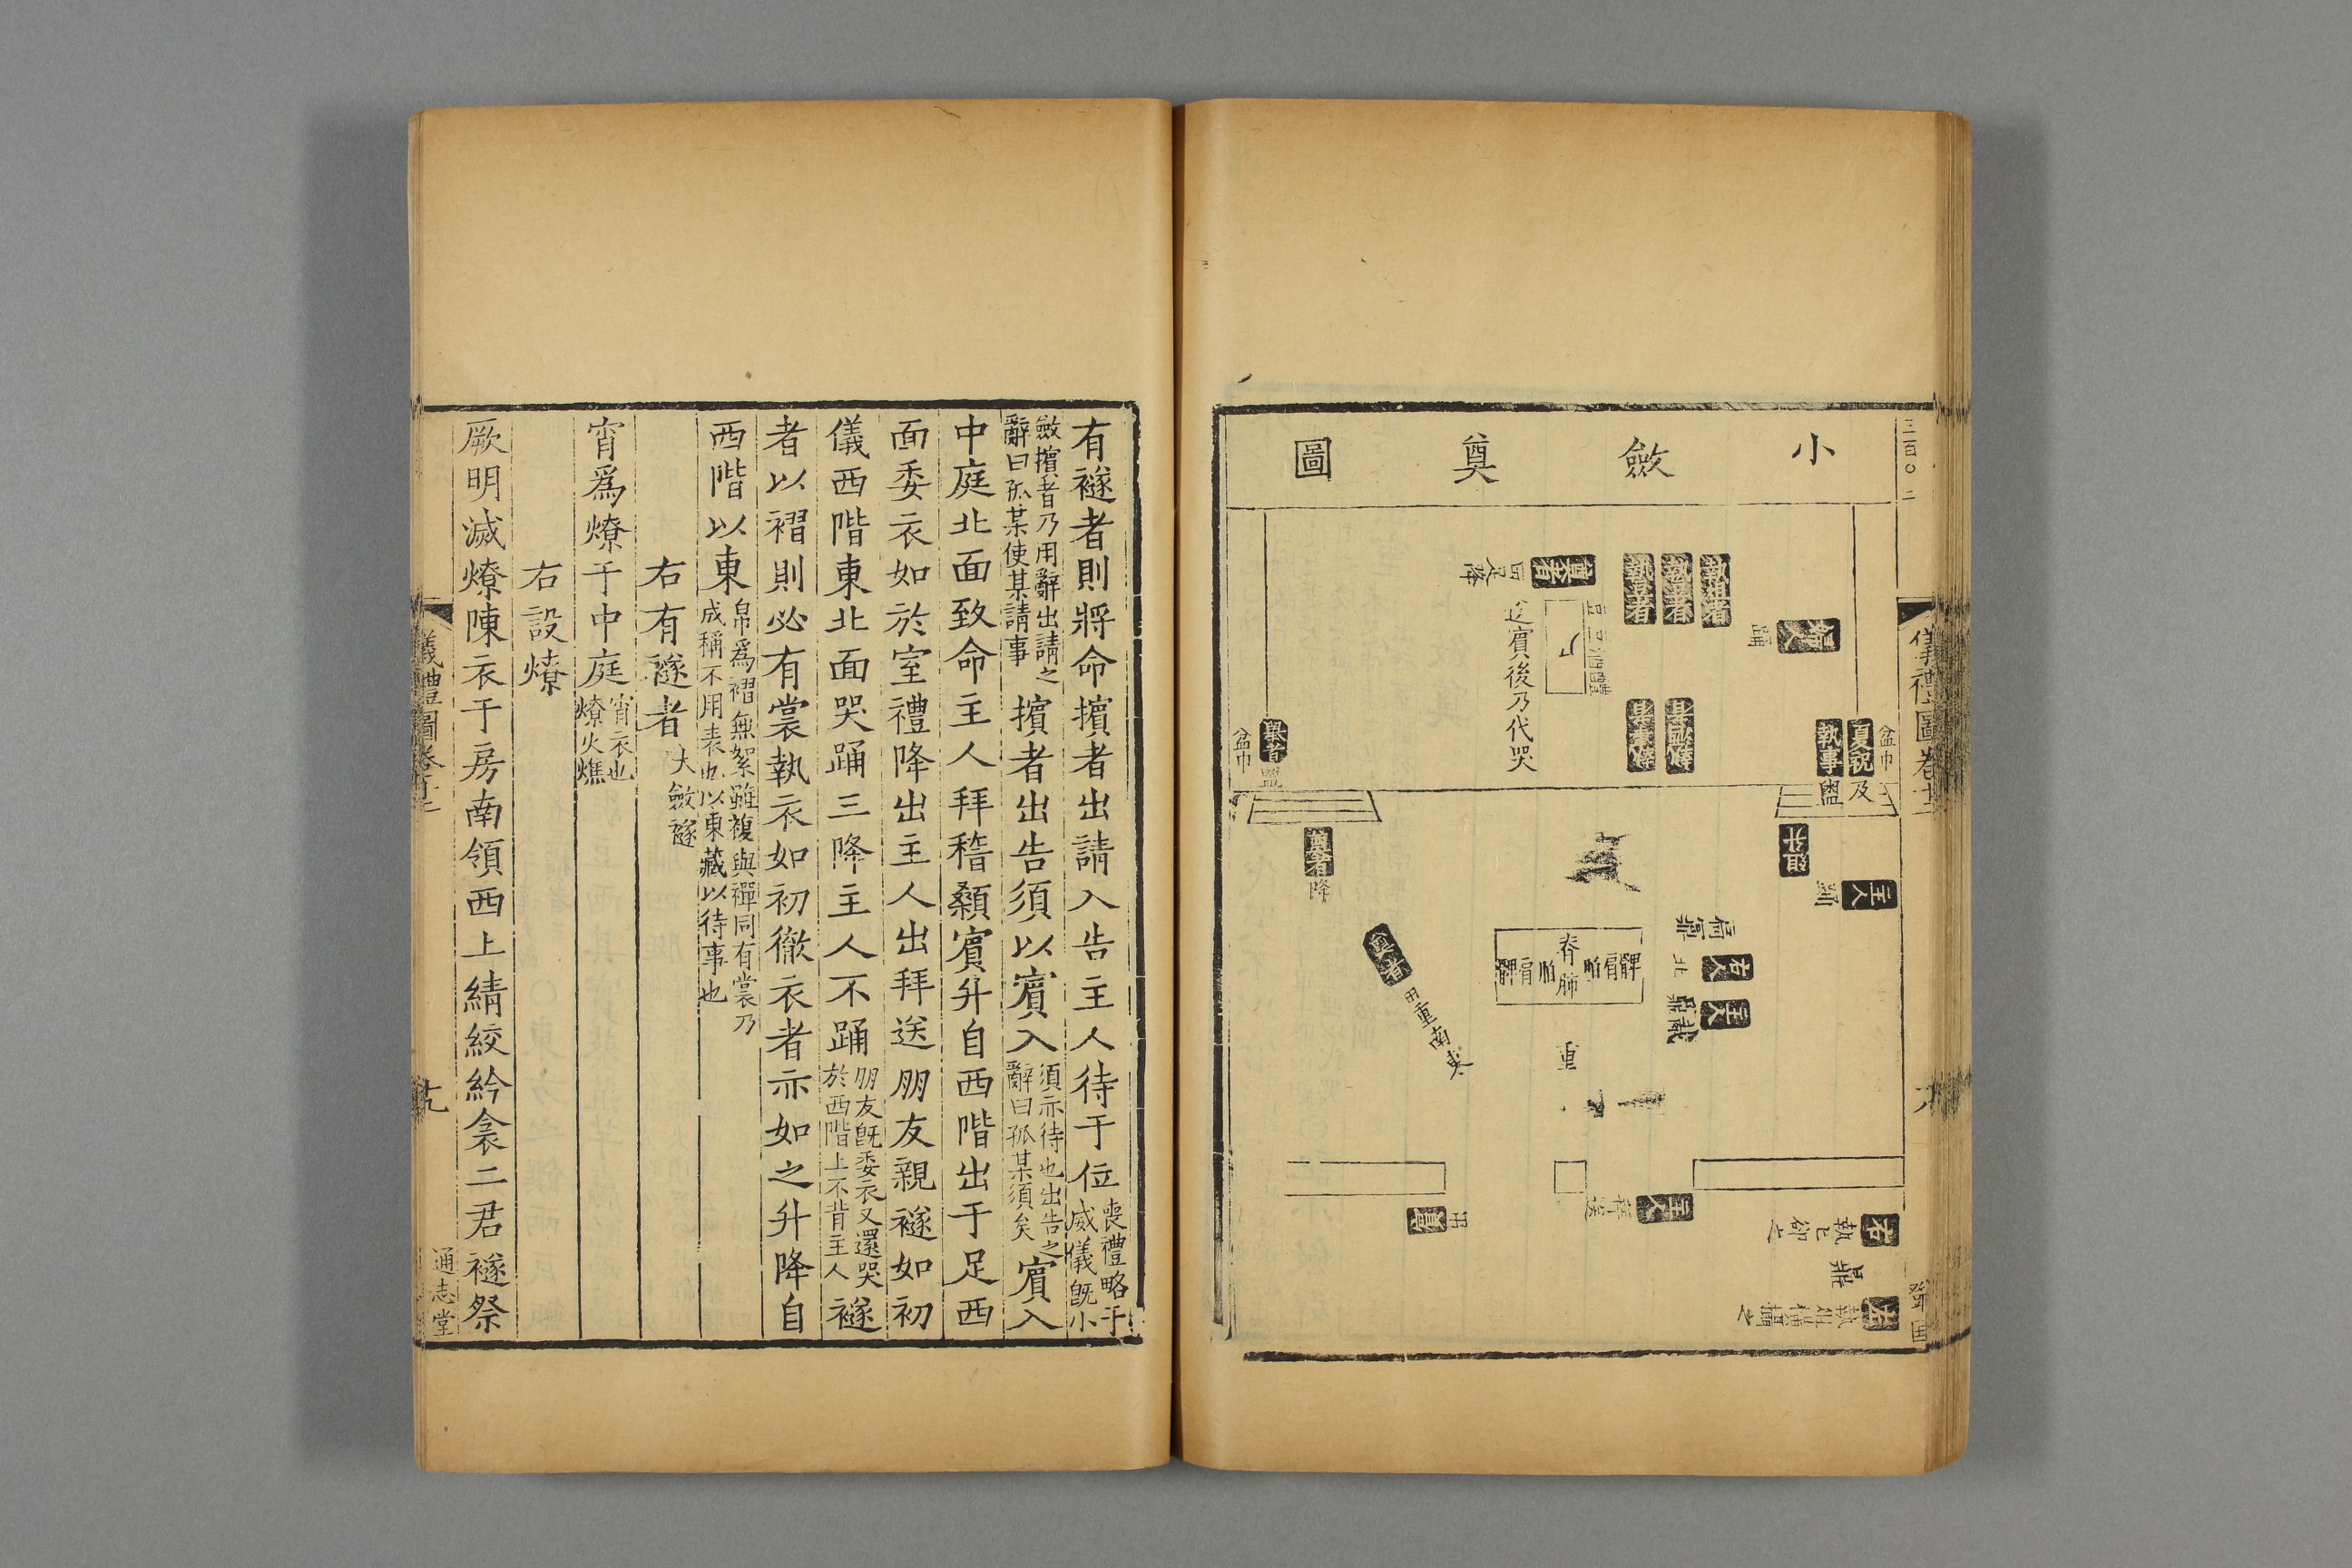 小斂奠圖
三百〇二
儀禮圖卷十一
婦人
踊
盆巾
夏祝及
執事盥
舉者盥
盆巾
送賓後乃代哭
奠者降
主人
脊
肺
重
由重南東
主人
拜送
賓
鼎
有襚者則將命擯者出請入告主人待于位喪禮略于威儀旣小
斂擯者乃用辭出請之辭曰孤某使某請事擯者出告須以賓入須亦待也出告之辭曰孤某須矣賓入
中庭北面致命主人拜稽顙賓升自西階出于足西
面委衣如於室禮降出主人出拜送朋友親襚如初
儀西階東北面哭踊三降主人不踊朋友旣委衣又還哭於西階上不背主人襚
者以褶則必有裳執衣如初徹衣者亦如之升降自
西階以東帛爲褶無絮雖複與襌同有裳乃成稱不用表也以東藏以待事也
右有襚者大斂襚
宵爲燎于中庭宵衣也燎火燋
右設燎
厥明滅燎陳衣于房南領西上綪絞紟衾二君襚祭
儀禮圖卷十一
十九
通志堂